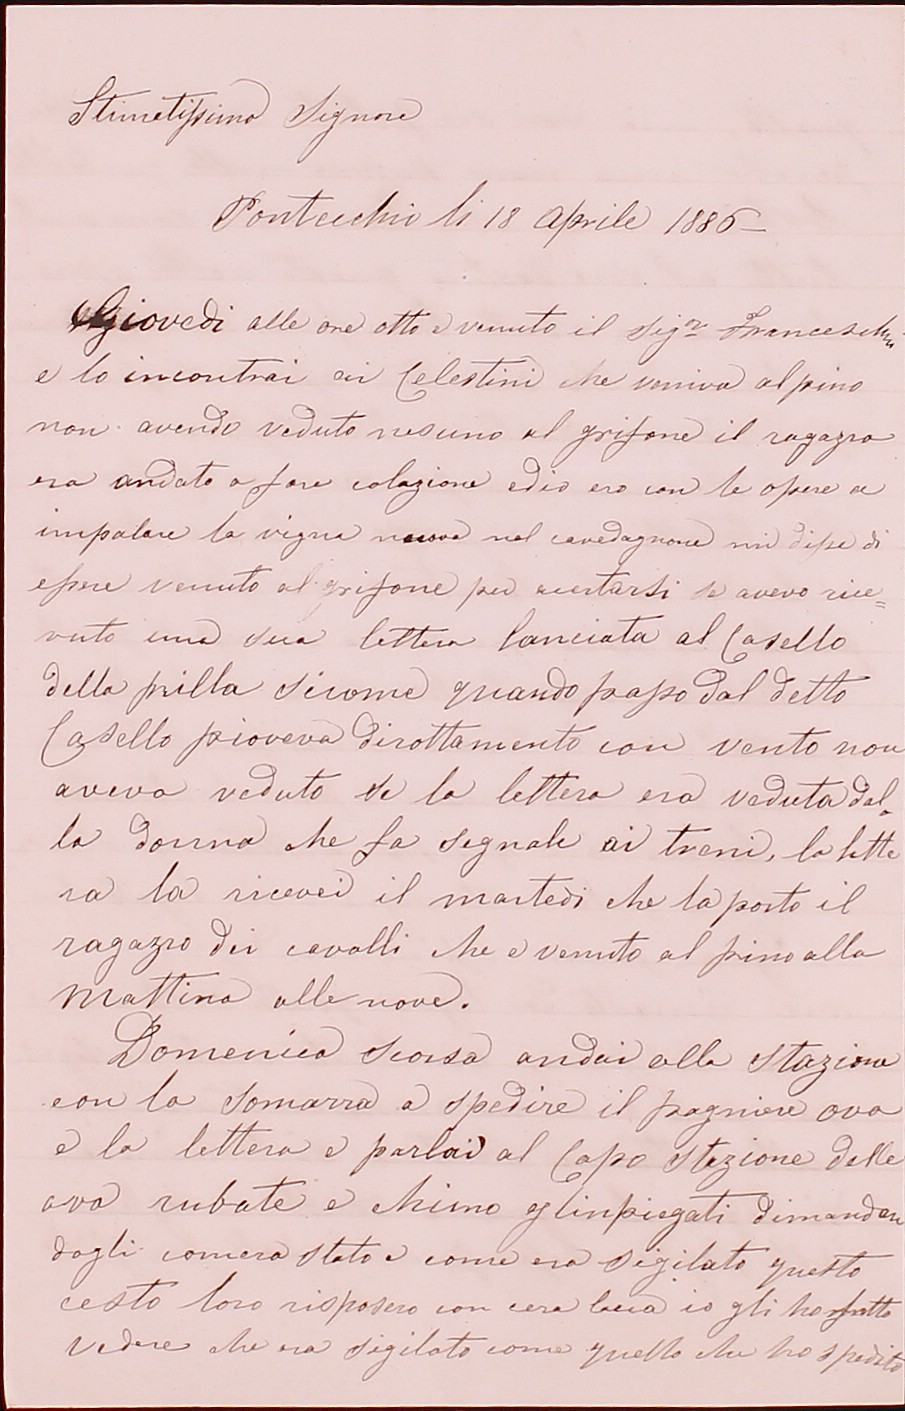 Stimatissimo Signore
Pontecchio li 18 Aprile 1886
Giovedi alle ore otto e venuto il Sigr Franceschini
e lo incontrai ai Celestini che veniva al pino
non avendo veduto nesuno al grifone il ragazzo
era andato a fare colazione ed io ero con le opere a
impalare la vigna nuova nel cavedagnone mi disse di
essere venuto al grifone per acertarsi se avevo rice=
vuto una sua lettera lanciata al Casello
della prilla sicome quando passo dal detto
Casello pioveva dirottamento con vento non
aveva veduto se la lettera era veduta dal=
la donna che fa segnale ai treni, la lette
ra la ricevei il martedi che la porto il
ragazzo dei cavalli che e venuto al pino alla
Mattina alle nove.
Domenica scorsa andai alla stazione
con la somarra a spedire il pagniere ova
e la lettera e parlai al Capo stazione delle
ova rubate e chimo glinpiegati dimandan
dogli comera stato e come era sigilato questo
cesto loro risposero con cera lacca io gli ho fatto
vedere che era sigilato come quello che ho spedito